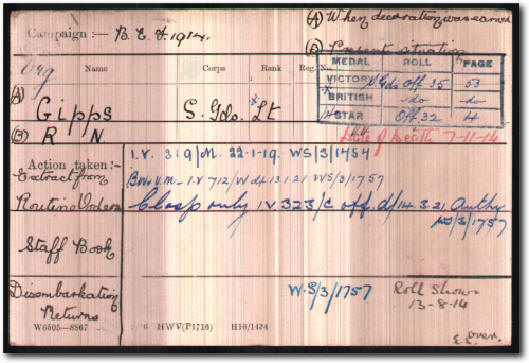 Campaign :— B. E. F. 1914.
(A) When decoration was earned
(B) Present situation
Name Corps Rank Reg. No.
MEDAL ROLL PAGE
VICTORY S Gds Off 35 53
BRITISH do do
14 STAR Off. 32 4
(A) Gipps S. Gds. Lt
(B) R N
Date of Death 7-11-14
Action taken :—
I.V. 319/M. 22-1-19. WS/3/1454
Extract from
B.W. V.M. I.V 712/W d/ 13.1.21 WS/3/1757
Routine Orders
Clasp only IV 323/C off. d/14.3.21 Authy
WS/3/1757
Staff Book
Disembarkation
Returns
W.S/3/1757
Roll Shows
13-8-14
W6505—8867 HWV(P1716) H16/1484